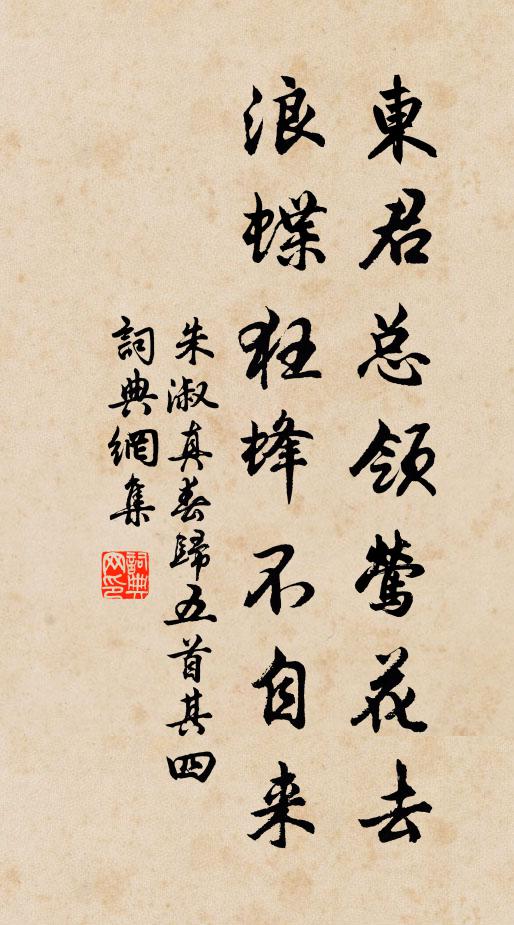 東君总領鶯花去
浪蝶狂蜂不自来
朱淑真春歸五首其四
詞典網集
詞典网印